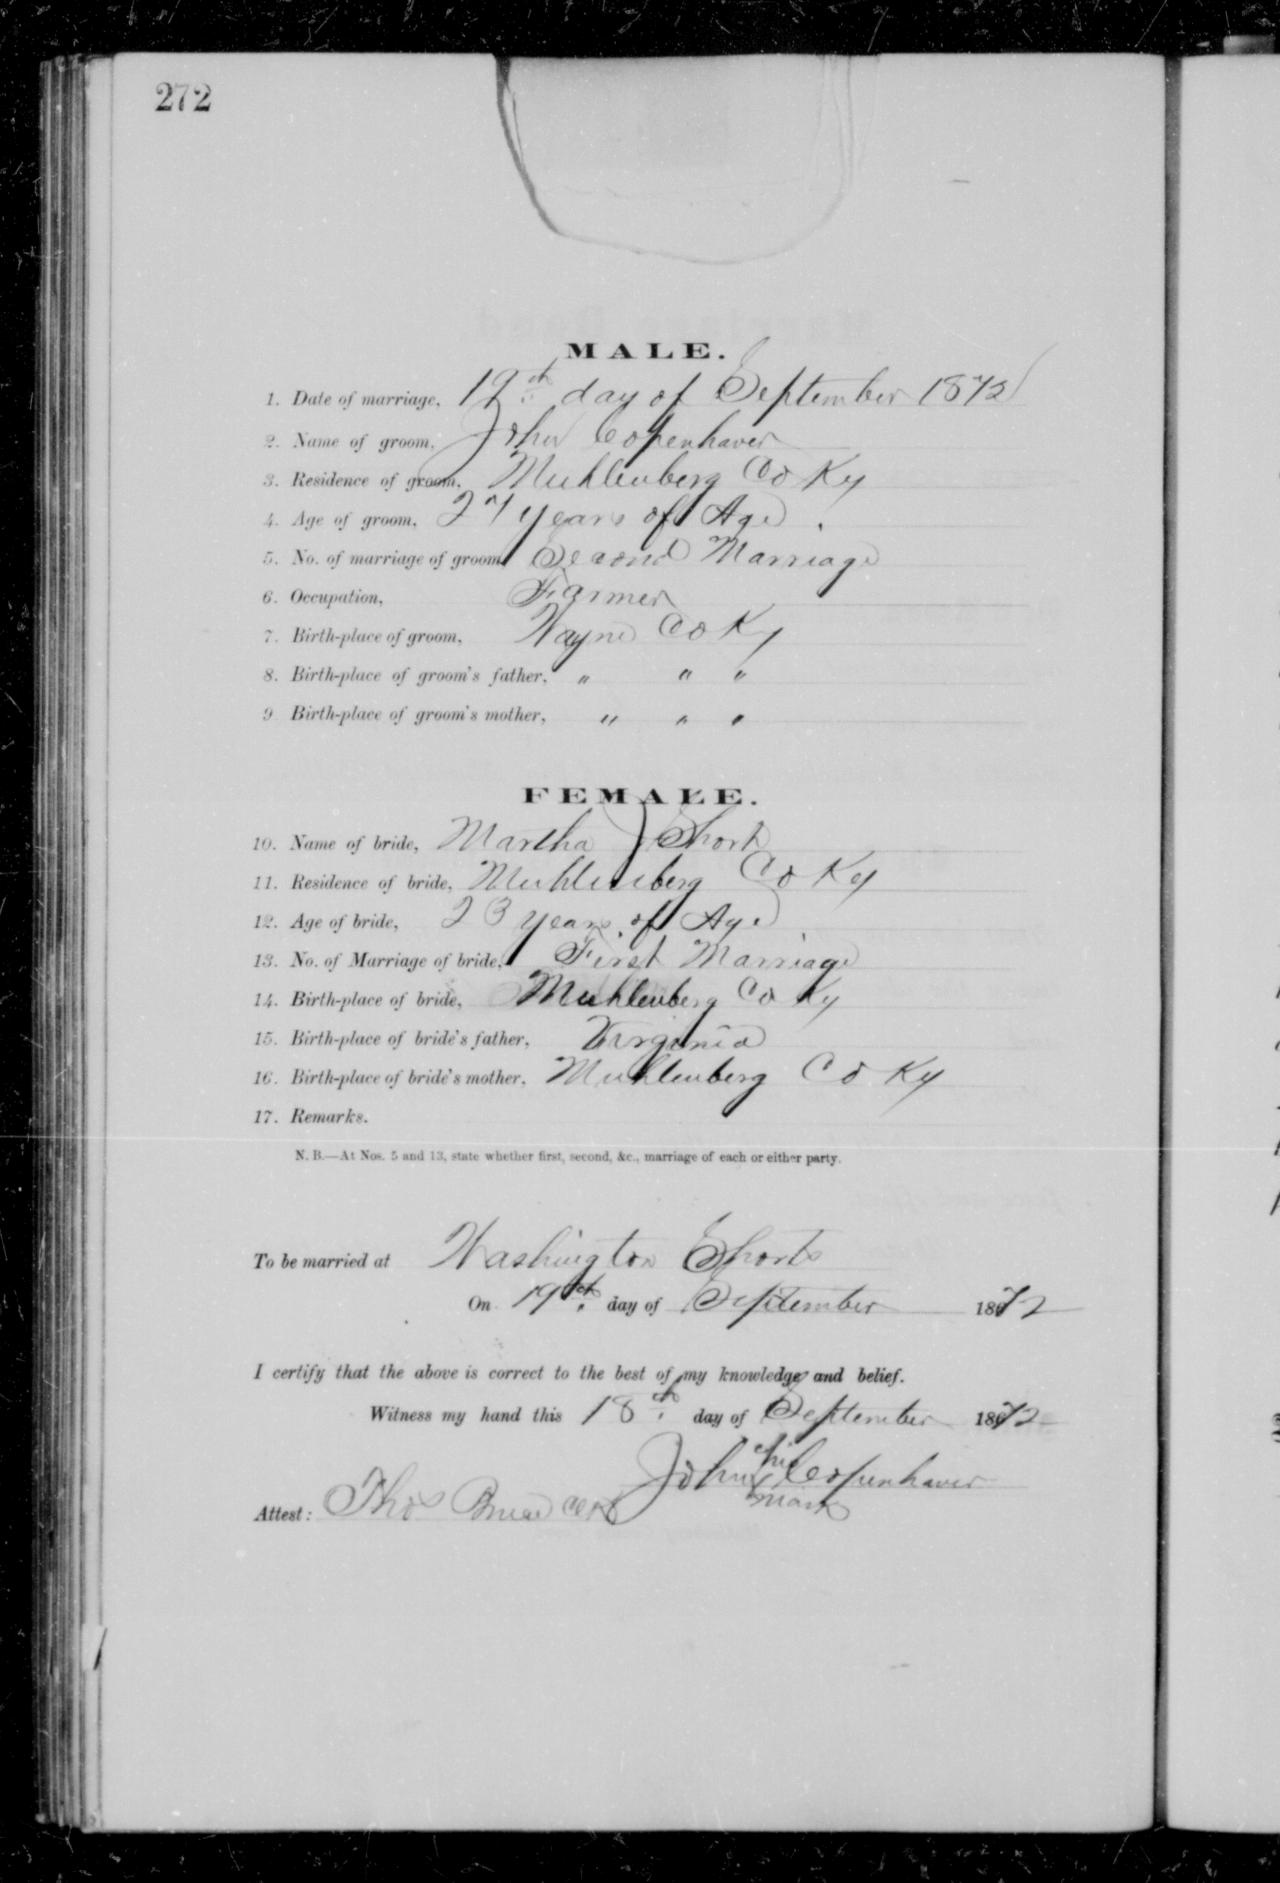 272
MALE.
1. Date of marriage, 19th day of September 1872
2. Name of groom, John Copenhaver
3. Residence of groom, Muhlenberg Co Ky
4. Age of groom, 27 years of Age.
5. No. of marriage of groom, Second Marriage
6. Occupation, Farmer
7. Birth-place of groom, Wayne Co Ky
8. Birth-place of groom's father, " " "
9 Birth-place of groom's mother, " " "
FEMALE.
10. Name of bride, Martha J Short
11. Residence of bride, Muhlenberg Co Ky
12. Age of bride, 23 years of Age
13. No. of Marriage of bride, First Marriage
14. Birth-place of bride, Muhlenberg Co Ky
15. Birth-place of bride's father, Virginia
16. Birth-place of bride's mother, Muhlenberg Co Ky
17. Remarks.
N. B.—At Nos. 5 and 13, state whether first, second, &c., marriage of each or either party.
To be married at Washington Shorts
On 19th day of September 1872
I certify that the above is correct to the best of my knowledge and belief.
Witness my hand this 18th day of September 1872
his
John X Copenhaver
mark
Attest: Thos Clk